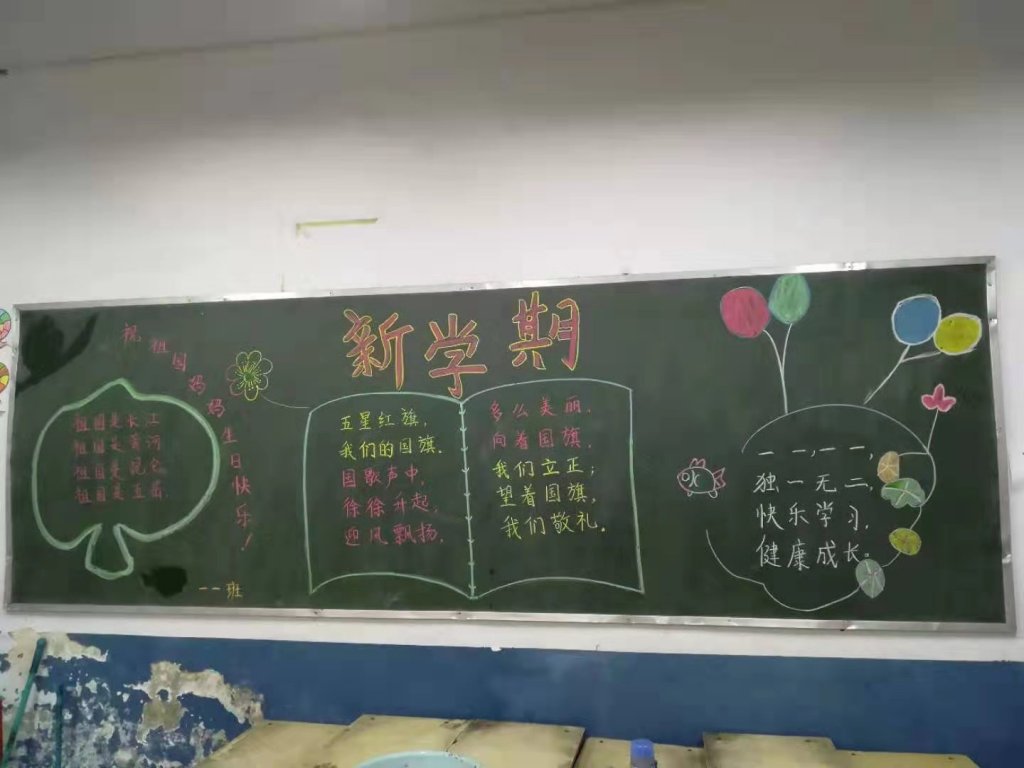 新学期
祝祖国妈妈生日快乐！
祖国是长江
祖国是黄河
祖国是昆仑
一一班
五星红旗，
我们的国旗。
国歌声中，
徐徐升起，
迎风飘扬，
多么美丽。
向着国旗，
我们立正；
望着国旗，
我们敬礼。
一一，一一，
独一无二，
快乐学习，
健康成长。